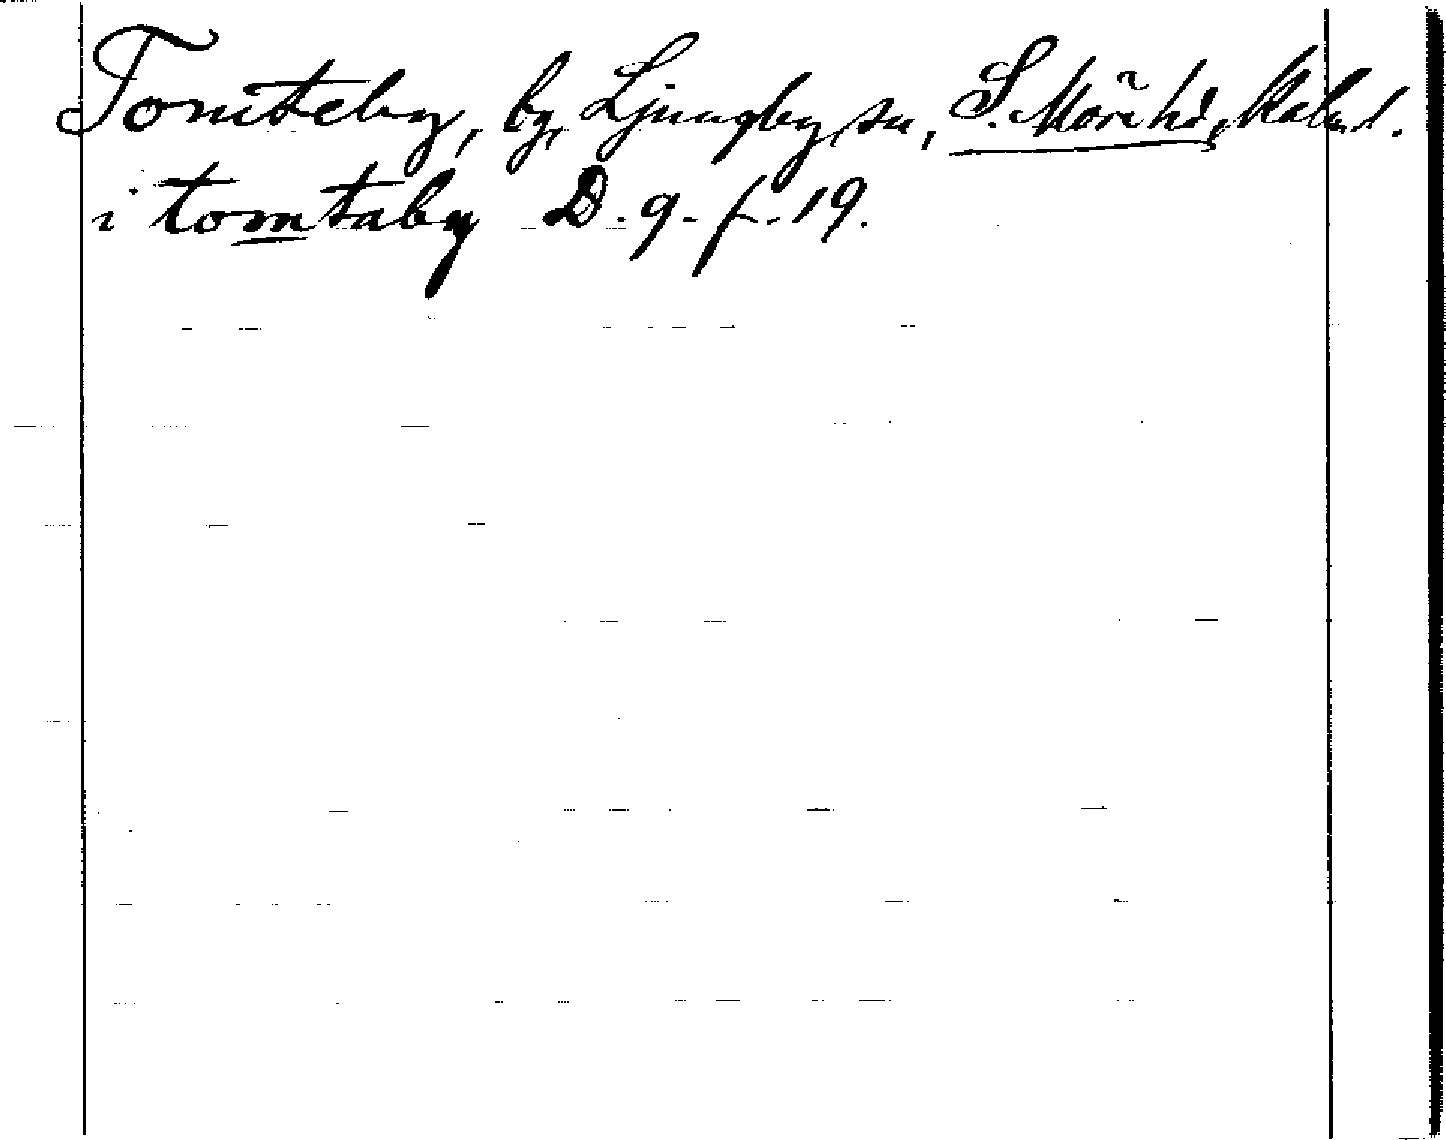 Tomteby, by, Ljungby sn, S. Möre hd, Kalm. l.
i tomtaby D. 9. f. 19.